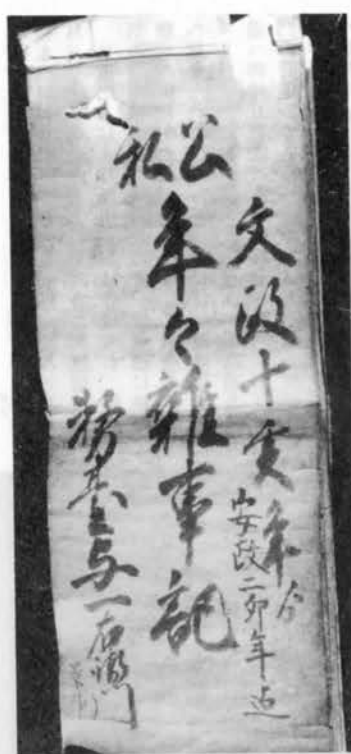 文政十亥年ゟ
安政二卯年迄
公私年々雑事記
務臺与一右衛門